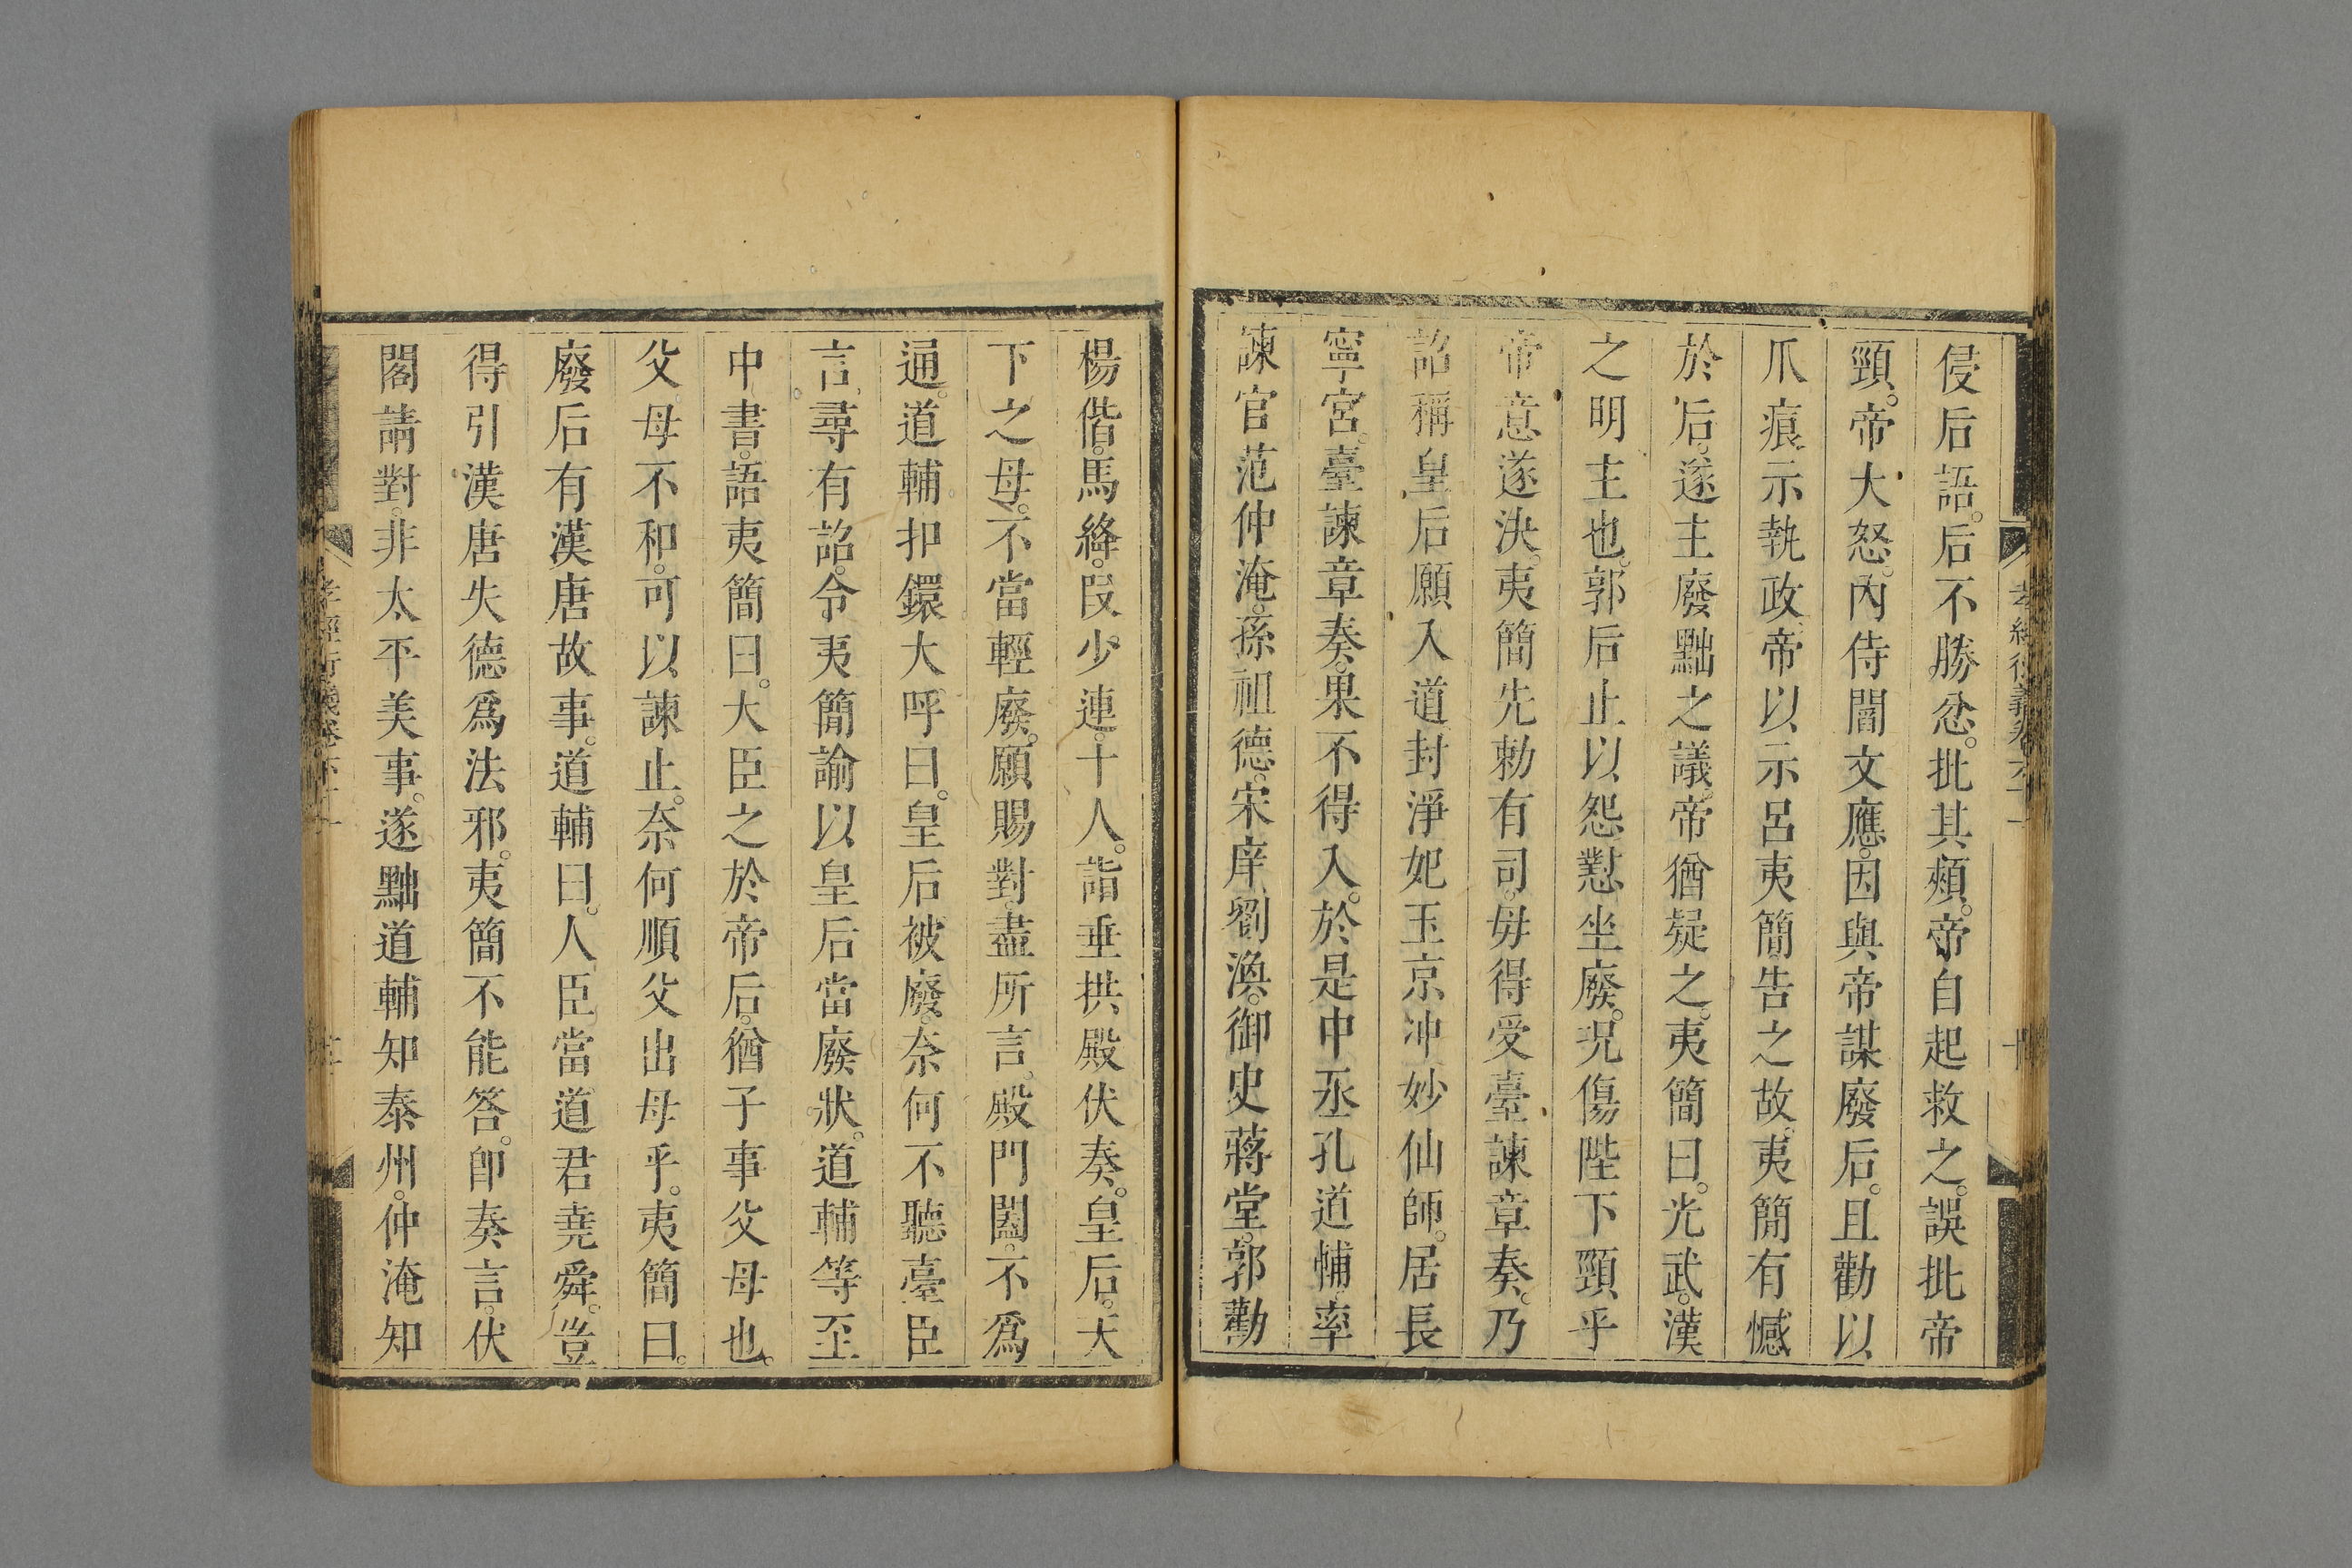 侵后語。后不勝忿。批其頰。帝自起救之。誤批帝
頸。帝大怒。內侍閻文應。因與帝謀廢后。且勸以
爪痕示執政。帝以示呂夷簡告之故。夷簡有憾
於后。遂主廢黜之議。帝猶疑之。夷簡曰。光武。漢
之明主也。郭后止以怨懟坐廢。況傷陛下頸乎
帝意遂決。夷簡先勅有司。毋得受臺諫章奏。乃
詔稱皇后願入道封淨妃玉京冲妙仙師。居長
寧宮。臺諫章奏。果不得入。於是中丞孔道輔。率
諫官范仲淹。孫祖德。宋庠。劉渙。御史蔣堂。郭勸
楊偕。馬絳。段少連。十人。詣垂拱殿伏奏。皇后。天
下之母。不當輕廢。願賜對。盡所言。殿門闔。不爲
通。道輔扣鐶大呼曰。皇后被廢。奈何不聽臺臣
言。尋有詔。令夷簡諭以皇后當廢狀。道輔等至
中書。語夷簡曰。大臣之於帝后。猶子事父母也。
父母不和。可以諫止。奈何順父出母乎。夷簡曰。
廢后有漢唐故事。道輔曰。人臣當道君堯舜。豈
得引漢唐失德爲法邪。夷簡不能答。卽奏言。伏
閣請對。非太平美事。遂黜道輔知泰州。仲淹知